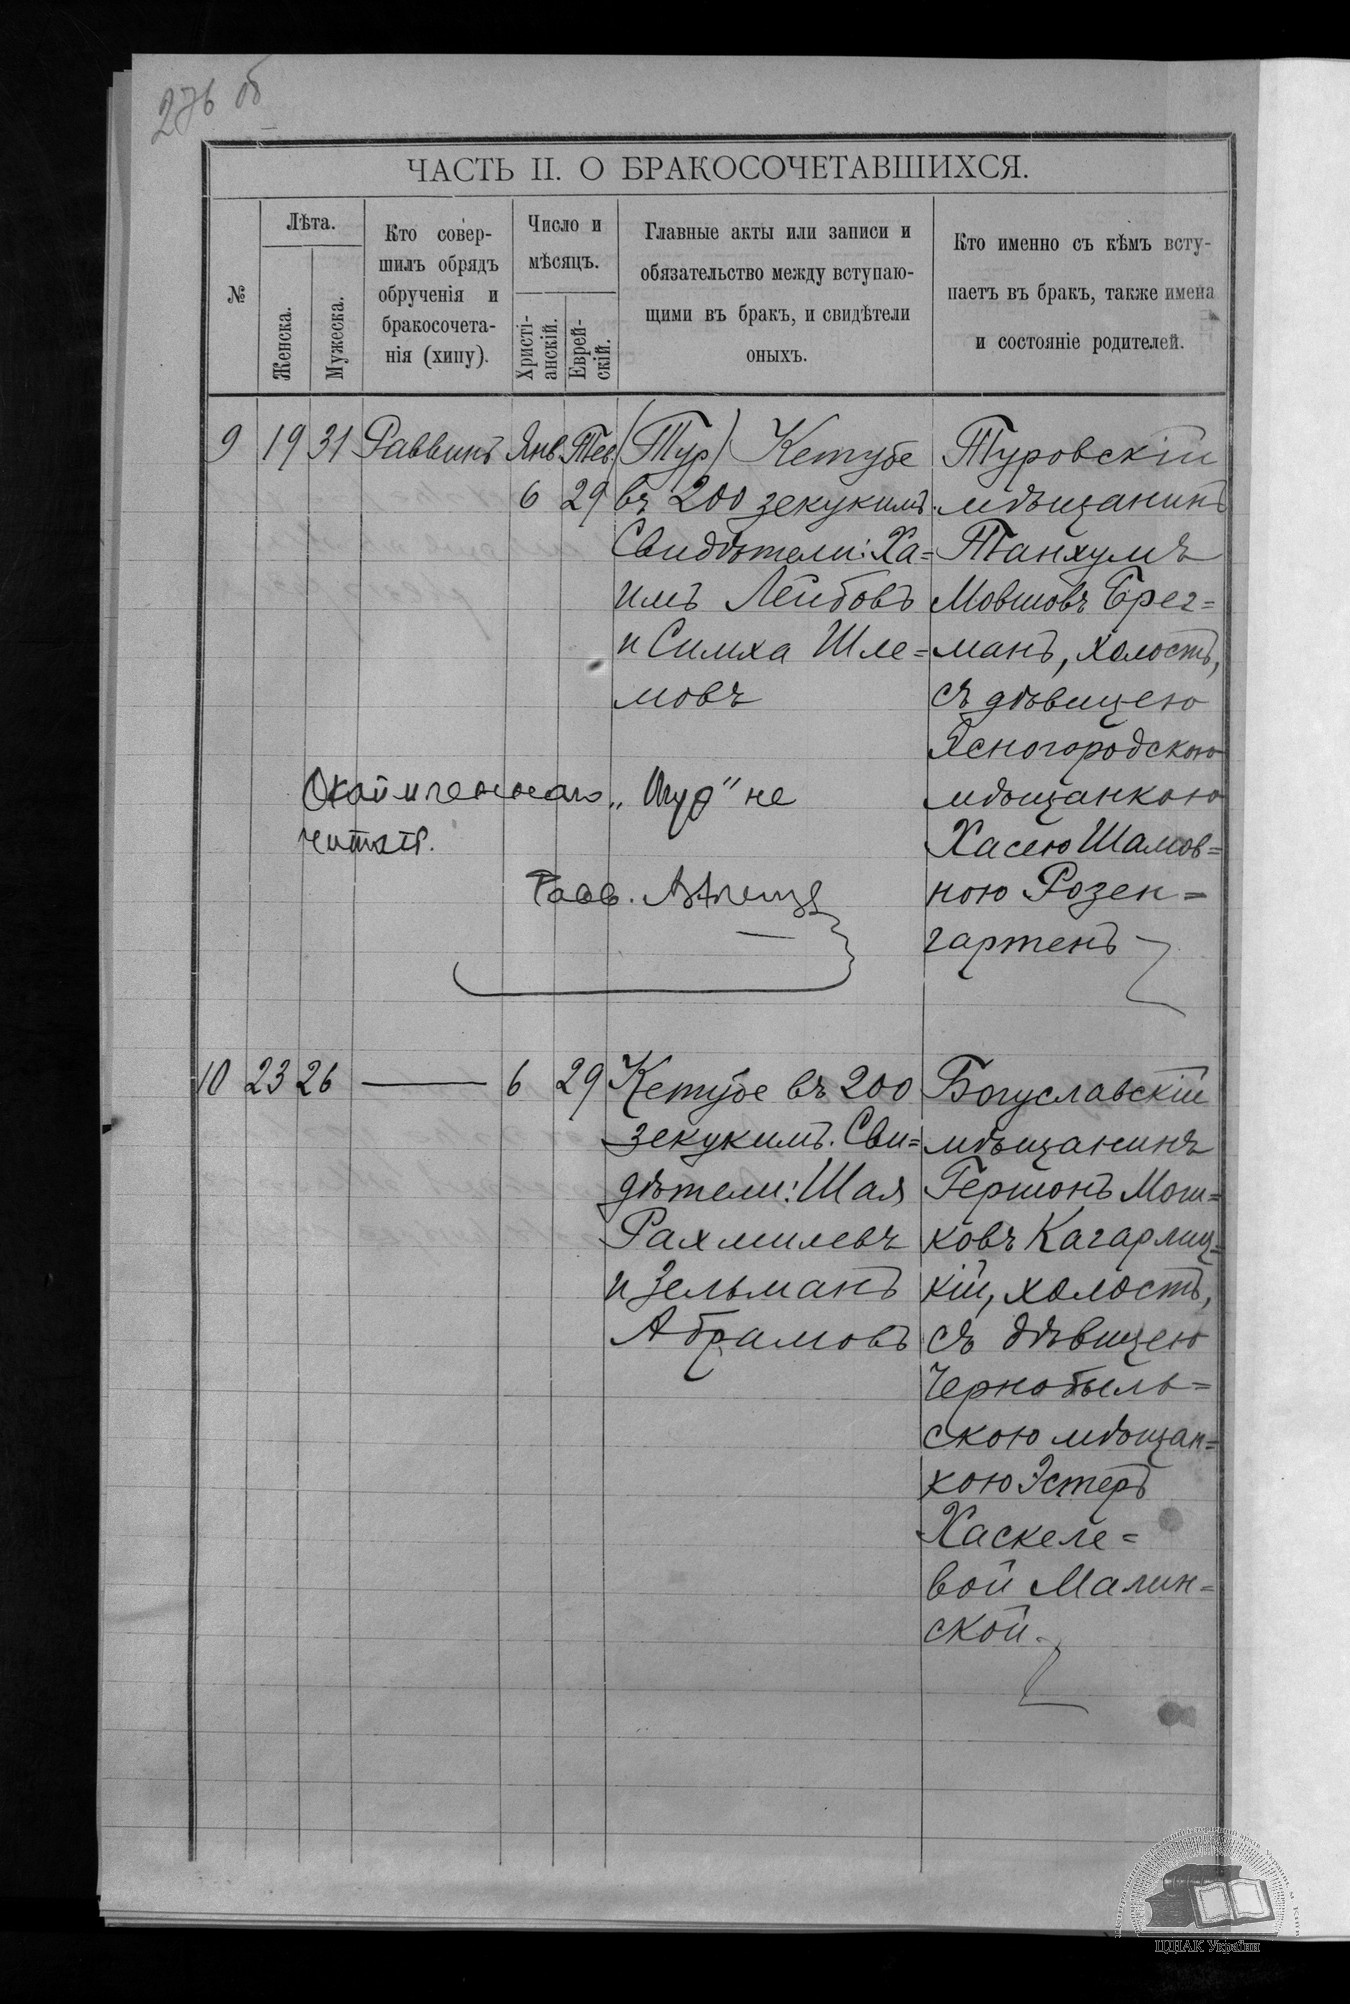 276 об
ЧАСТЬ II. О БРАКОСОЧЕТАВШИХСЯ.
№
Лѣта.
Женска.
Мужеска.
Кто совер-
шилъ обрядъ
обрученія и
бракосочета-
нія (хипу).
Число и
мѣсяцъ.
Христі-
анскій.
Еврей-
скій.
Главные акты или записи и
обязательство между вступаю-
щими въ бракъ, и свидѣтели
оныхъ.
Кто именно съ кѣмъ всту-
паетъ въ бракъ, также имена
и состояніе родителей.
9 19 31 Раввинъ Янв. Тев. (Тур) Кетубе
6 29 въ 200 зекукимъ.
Свидѣтели: Ха=
имъ Лейбовъ
и Симха Шле=
мовъ
Туровскій
мѣщанинъ
Танхумъ
Мовшовъ Брег=
манъ, холостъ,
съ дѣвицею
Ясногородскою
мѣщанкою
Хасею Шамов=
ною Розен=
гартенъ
Окаймленнаго „Тур" не
читать.
Равв.
10 23 26 — 6 29 Кетубе въ 200
зекукимъ. Сви=
дѣтели: Шая
Рахмилевъ
и Зельманъ
Абрамовъ
Богуславскій
мѣщанинъ
Гершонъ Мош=
ковъ Кагарлиц=
кій, холостъ,
съ дѣвицею
Чернобыль=
скою мѣщан=
кою Эстеръ
Хаскеле=
вой Малин=
ской.
ЦДІАК України